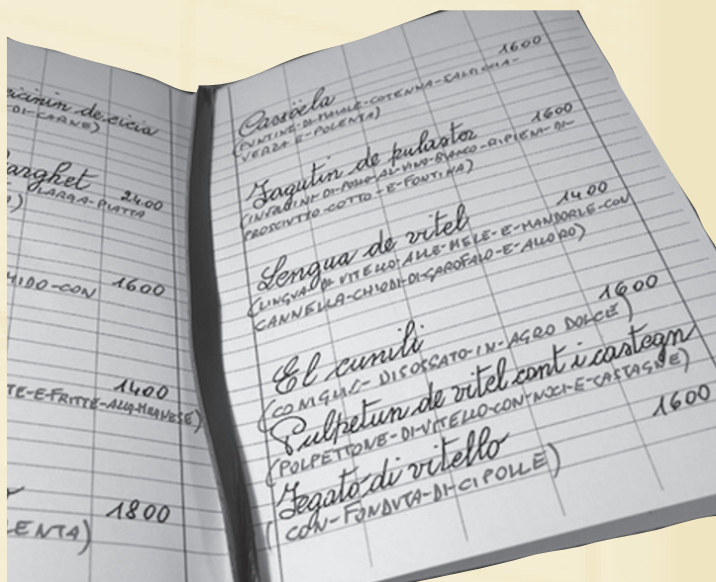 DI-CARNE)
2400
LARGA-PIATTA
)
1600
1400
TE-E-FRITTE-ALLA-MILANESE)
1800
LENTA)
1600
Cassöela
(PUNTINE-DI-MAIALE-COTENNA-SALSICCIA-
VERZA E-POLENTA)
1600
Fagutin de pulastor
(INVOLTINI-DI-POLLO-AL-VINO-BIANCO-RIPIENI-DI-
PROSCIUTTO COTTO-E-FONTINA)
1400
Lengua de vitel
(LINGUA DI VITELLO-ALLE-MELE-E-MANDORLE-CON
CANNELLA-CHIODI-DI-GAROFALO-E-ALLORO)
1600
El cunili
( DISOSSATO-IN-AGRO DOLCE)
Pulpetun de vitel cont i castegn
(POLPETTONE-DI-VITELLO-CON-NOCI-E-CASTAGNE)
1600
Fegato di vitello
(CON-FONDUTA-DI-CIPOLLE)